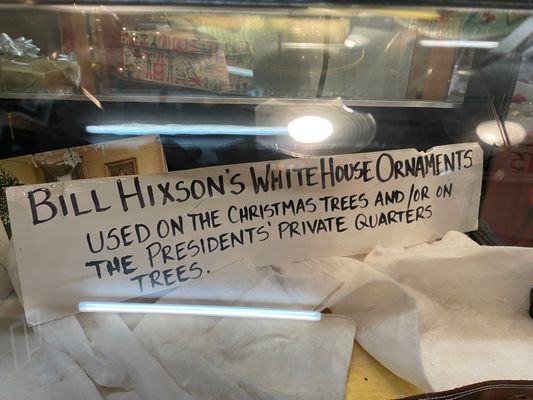 BILL HIXSON'S WHITE HOUSE ORNAMENTS
USED ON THE CHRISTMAS TREES AND/OR ON
THE PRESIDENTS' PRIVATE QUARTERS
TREES.